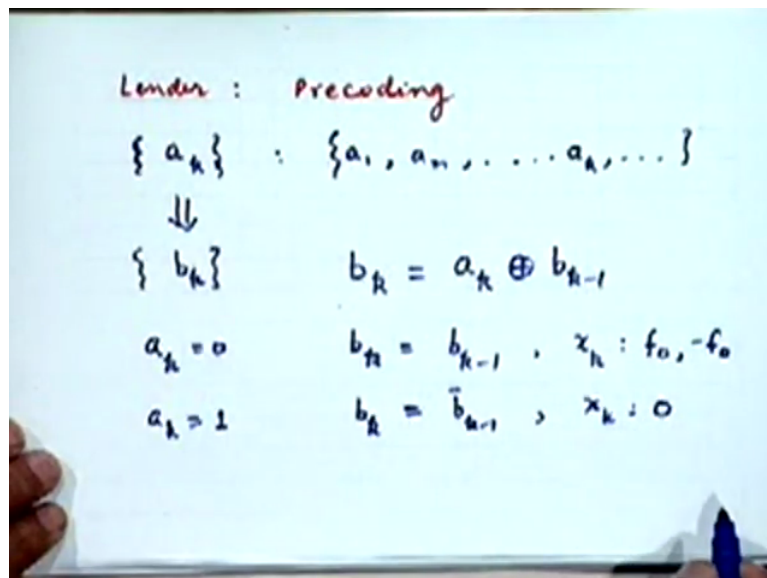 Lender : Precoding
{ aₖ } : {a₁, aₘ, .... aₖ, ... }
⇓
{ bₖ } bₖ = aₖ ⊕ bₖ₋₁
aₖ = 0 bₖ = bₖ₋₁ , xₖ : f₀, -f₀
aₖ = 1 bₖ = b̄ₖ₋₁ , xₖ : 0